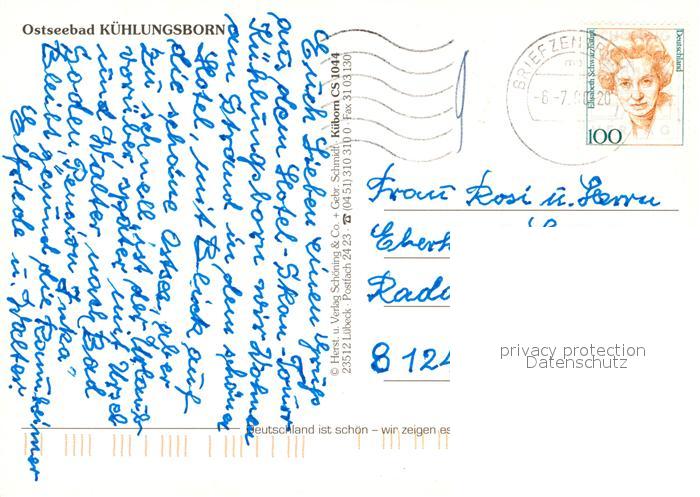 Ostseebad KÜHLUNGSBORN
Euch Lieben einen Gruß
aus dem Hotel-Skan-Tours
Kühlungsborn wir wohnen
am Strand in dem schönen
Hotel, mit Blick auf
die schöne Ostsee, aber
zu schnell ist der Urlaub
vorüber, später mit Ursel
und Walter nach Bad
Soden, Pension "
Bleibt gesund die
Elfriede u. Walter.
© Herst. u. Verlag Schöning & Co. + Gebr. Schmidt · Küborn CS 1044
23512 Lübeck · Postfach 24 23 · ☎ (04 51) 310 310 0 · Fax 31 03 130
BRIEFZEN
-6.-7.
20
Elisabeth Schwarzhaupt
Deutschland
100
Frau Rosi u. Herrn
Eberh
Rado
8 124
privacy protection
Datenschutz
Deutschland ist schön – wir zeigen es